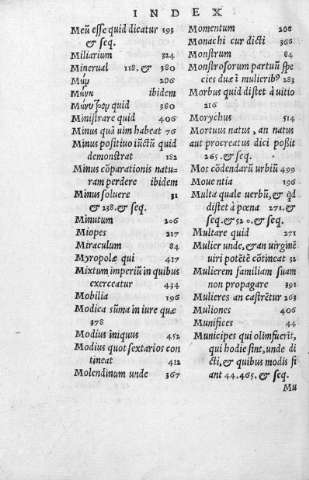 INDEX
Meũ esse quid dicatur 193
& seq.
Miliarium 324
Minerual 118. & 380
Μύῳ 206
Μύῳν ibidem
quid 380
Ministrare quid 406
Minus quā uim habeat 76
Minus positiuo iũctũ quid
demonstrat 182
Minus cōparationis natu-
ram perdere ibidem
Minus soluere 31
& 238. & seq.
Minutum 206
Miopes 217
Miraculum 84
Myropolæ qui 417
Mixtum imperiũ in quibus
exerceatur 434
Mobilia 196
Modica sũma in iure quæ
378
Modius iniquus 452
Modius quot sextarios con
tineat 412
Molendinum unde 367
Momentum 206
Monachi cur dicti 366
Monstrum 84
Monstrosorum partuũ spe
cies duæ ĩ mulierib° 283
Morbus quid distet à uitio
216
Morychus 514
Mortuus natus, an natus
aut procreatus dici possit
265. & seq.
Mos cōdendarũ urbiũ 499
Mouentia 196
Multa quale uerbũ, & qd
distet à pœna 271. &
seq. & 520. & seq.
Multare quid 271
Mulier unde, & an uirginē
uiri potētē cōtineat 32
Mulierem familiam suam
non propagare 391
Mulieres an castrētur 263
Muliones 406
Munifices 44
Municipes qui olim fuerĩt,
qui hodie sint, unde di
cti, & quibus modis fi
ant 44. 465. & seq.
Mu